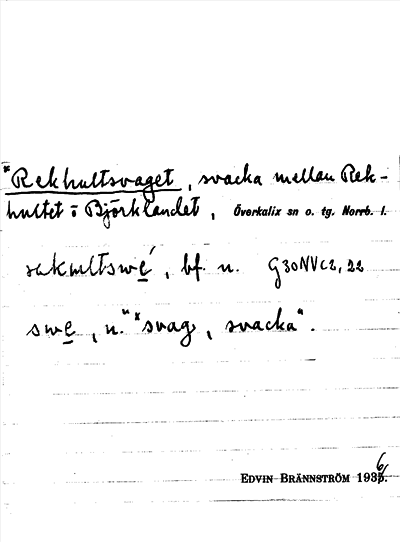 *Rekhultsvaget, svacka mellan Rek-
hultet o Björklandet, Överkalix sn o. tg. Norrb. l.
bf. n. G30NVc2, 22
swe, n. "*svag, svacka".
EDVIN BRÄNNSTRÖM 1936.